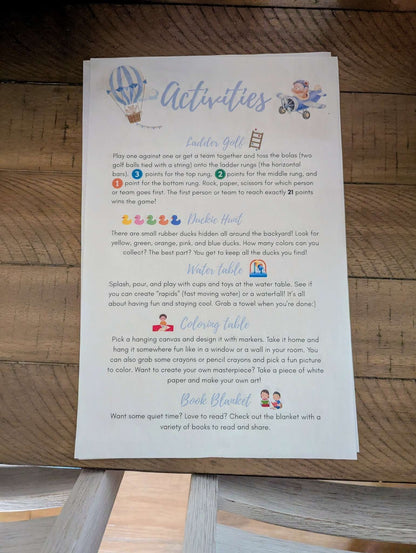 Activities
Ladder Golf
Play one against one or get a team together and toss the bolas (two
golf balls tied with a string) onto the ladder rungs (the horizontal
bars). 3 points for the top rung, 2 points for the middle rung, and
1 point for the bottom rung. Rock, paper, scissors for which person
or team goes first. The first person or team to reach exactly 21 points
wins the game!
Duckie Hunt
There are small rubber ducks hidden all around the backyard! Look for
yellow, green, orange, pink, and blue ducks. How many colors can you
collect? The best part? You get to keep all the ducks you find!
Water table
Splash, pour, and play with cups and toys at the water table. See if
you can create "rapids" (fast moving water) or a waterfall! It's all
about having fun and staying cool. Grab a towel when you're done:)
Coloring table
Pick a hanging canvas and design it with markers. Take it home and
hang it somewhere fun like in a window or a wall in your room. You
can also grab some crayons or pencil crayons and pick a fun picture
to color. Want to create your own masterpiece? Take a piece of white
paper and make your own art!
Book Blanket
Want some quiet time? Love to read? Check out the blanket with a
variety of books to read and share.